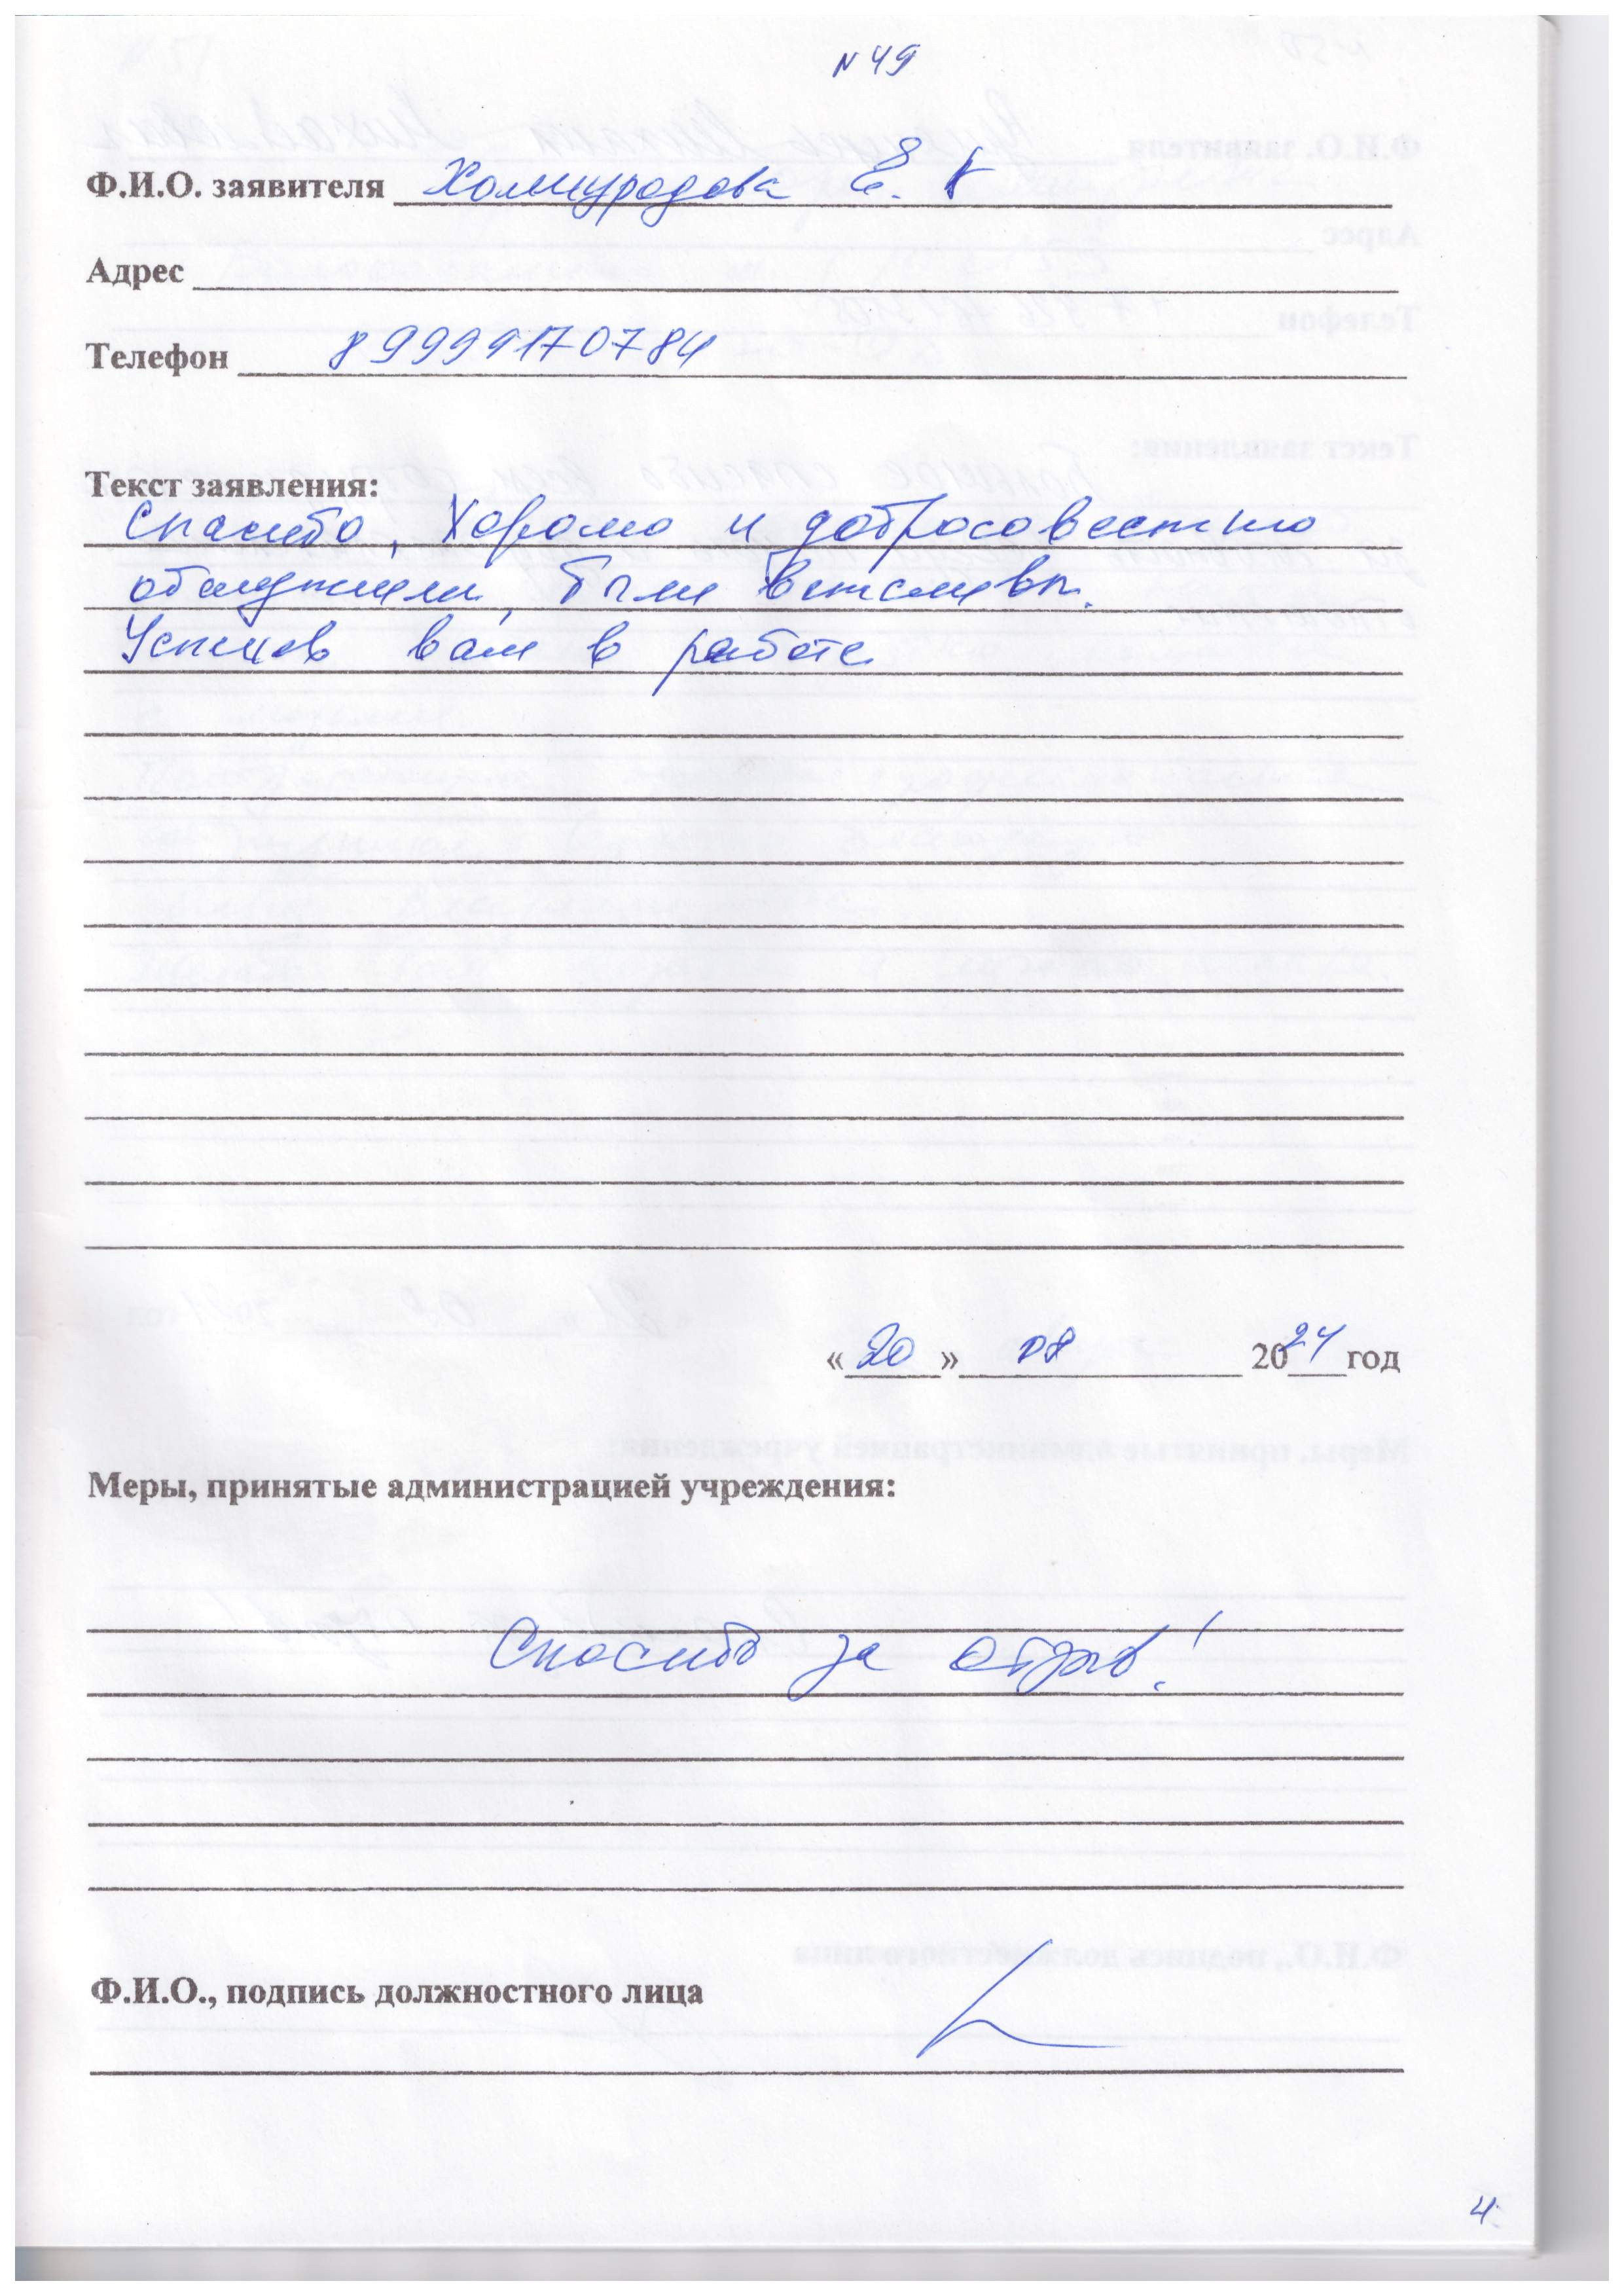 N 49
Ф.И.О. заявителя Холмуродова Е. К
Адрес
Телефон 89999170784
Текст заявления:
Спасибо, Хорошо и добросовестно
обслужили, были вежливы.
Успехов вам в работе
«20» 08 2024 год
Меры, принятые администрацией учреждения:
Спасибо за отзыв!
Ф.И.О., подпись должностного лица
4